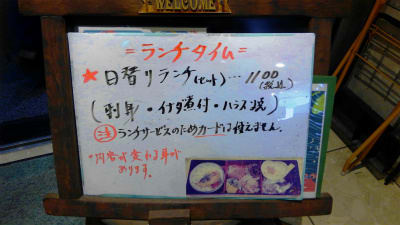 WELCOME
=ランチタイム=
★日替りランチ(セット)…1100
(税込)
(刺身・付ダ煮付・ハラス焼)
注 ランチサービスのためカードは使えません。
*内容が変わる事が
あります。